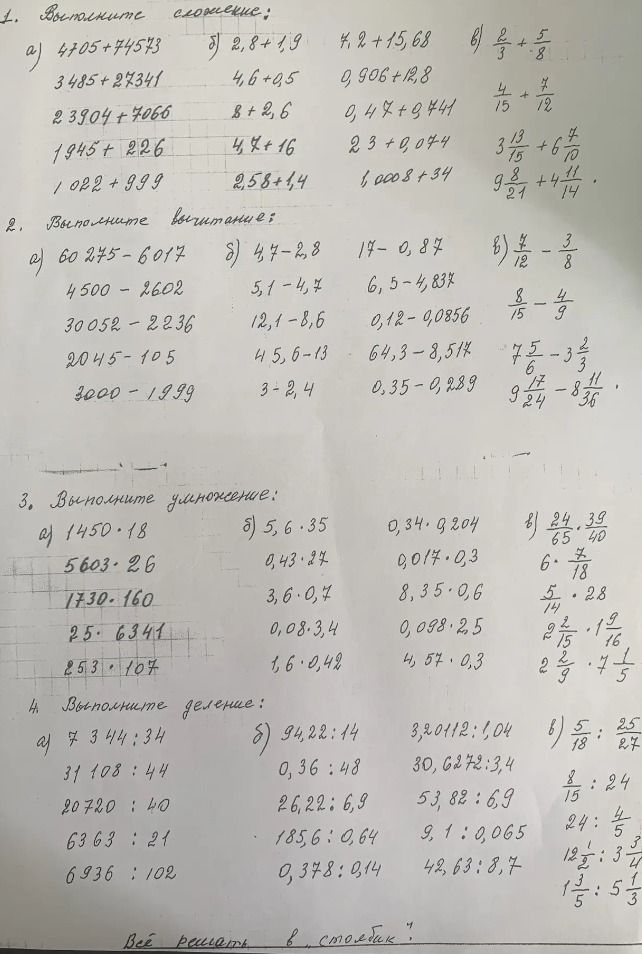 1. Выполните сложение:
а) 4705+74573 б) 2,8+1,9 7,2+15,68 в) 2/3 + 5/8
3485+27341 4,6+0,5 0,906+12,8 4/15 + 7/12
23904+7066 8+2,6 0,47+0,741 3 13/15 + 6 7/10
1945+226 4,7+16 23+0,074 9 8/21 + 4 11/14.
1022+999 2,58+1,4 1,0008+34
2. Выполните вычитание:
а) 60275-6017 б) 4,7-2,8 17-0,87 в) 7/12 - 3/8
4500-2602 5,1-4,7 6,5-4,837 8/15 - 4/9
30052-2236 12,1-8,6 0,12-0,0856 7 5/6 - 3 2/3
2045-105 45,6-13 64,3-8,517 9 17/24 - 8 11/36.
3000-1999 3-2,4 0,35-0,289
3. Выполните умножение:
а) 1450·18 б) 5,6·35 0,34·0,204 в) 24/65 · 39/40
5603·26 0,43·27 0,017·0,3 6 · 7/18
1730·160 3,6·0,7 8,35·0,6 5/14 · 28
25·6341 0,08·3,4 0,098·2,5 2 2/15 · 1 9/16
253·107 1,6·0,42 4,57·0,3 2 2/9 · 7 1/5
4. Выполните деление:
а) 7344:34 б) 94,22:14 3,20112:1,04 в) 5/18 : 25/27
31108:44 0,36:48 30,6272:3,4 8/15 : 24
20720:40 26,22:6,9 53,82:6,9 24 : 4/5
6363:21 185,6:0,64 9,1:0,065 12 1/2 : 3 3/4
6936:102 0,378:0,14 42,63:8,7 1 3/5 : 5 1/3
Всё решать в „столбик"!